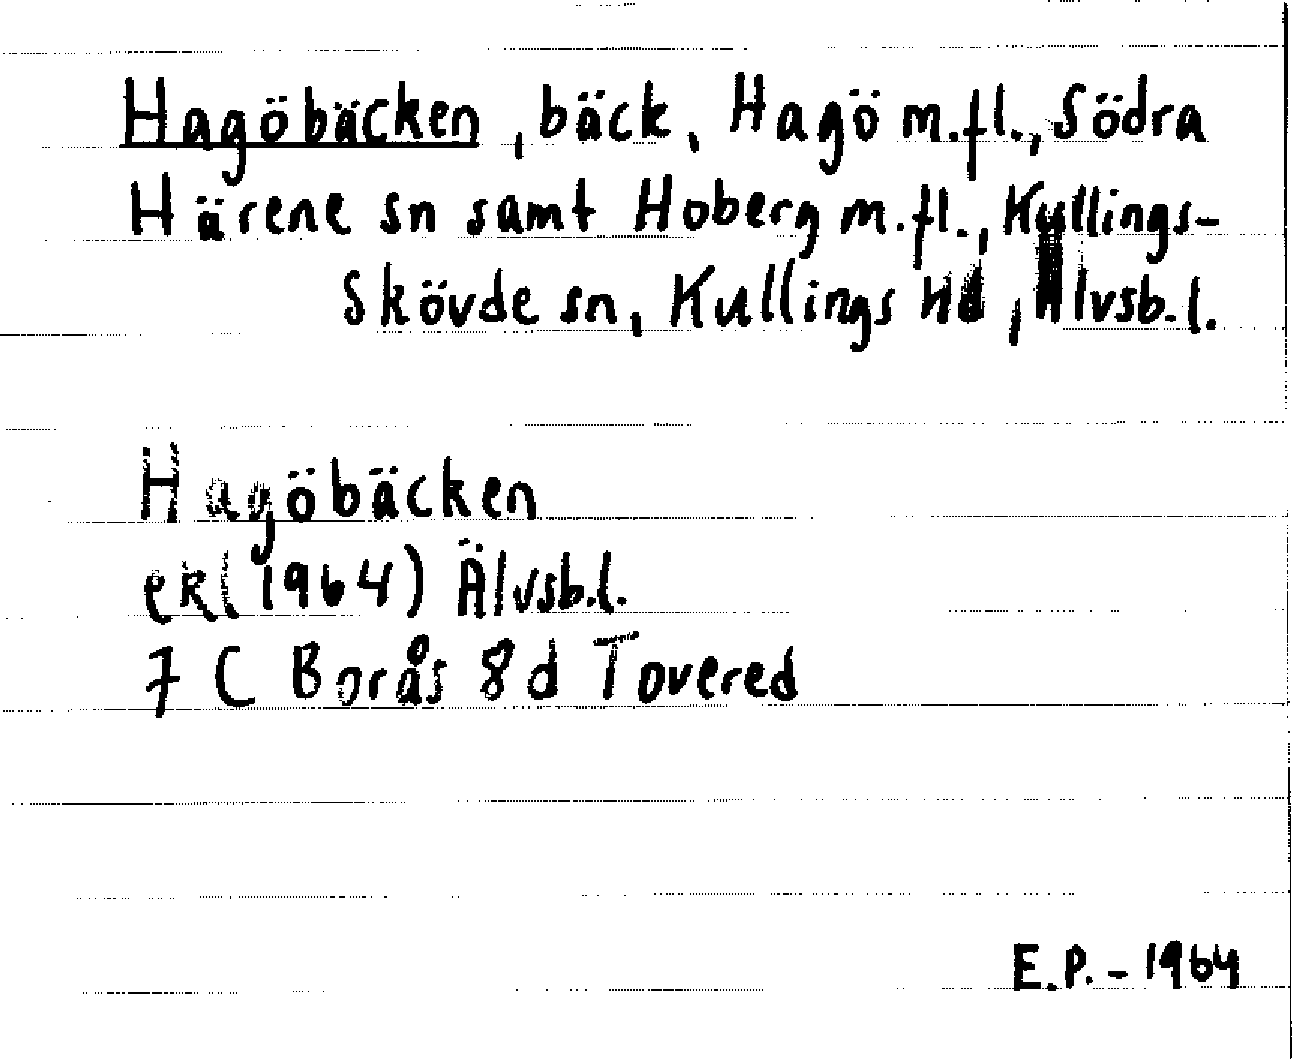 Hagöbäcken, bäck, Hagö m.fl., Södra
Härene sn samt Hoberg m.fl., Kullings-
Skövde sn, Kullings Hd, Älvsb.l.
Hagöbäcken
ekl 1964) Älvsb.l.
7 C Borås 8d Tovered
E.P. - 1964